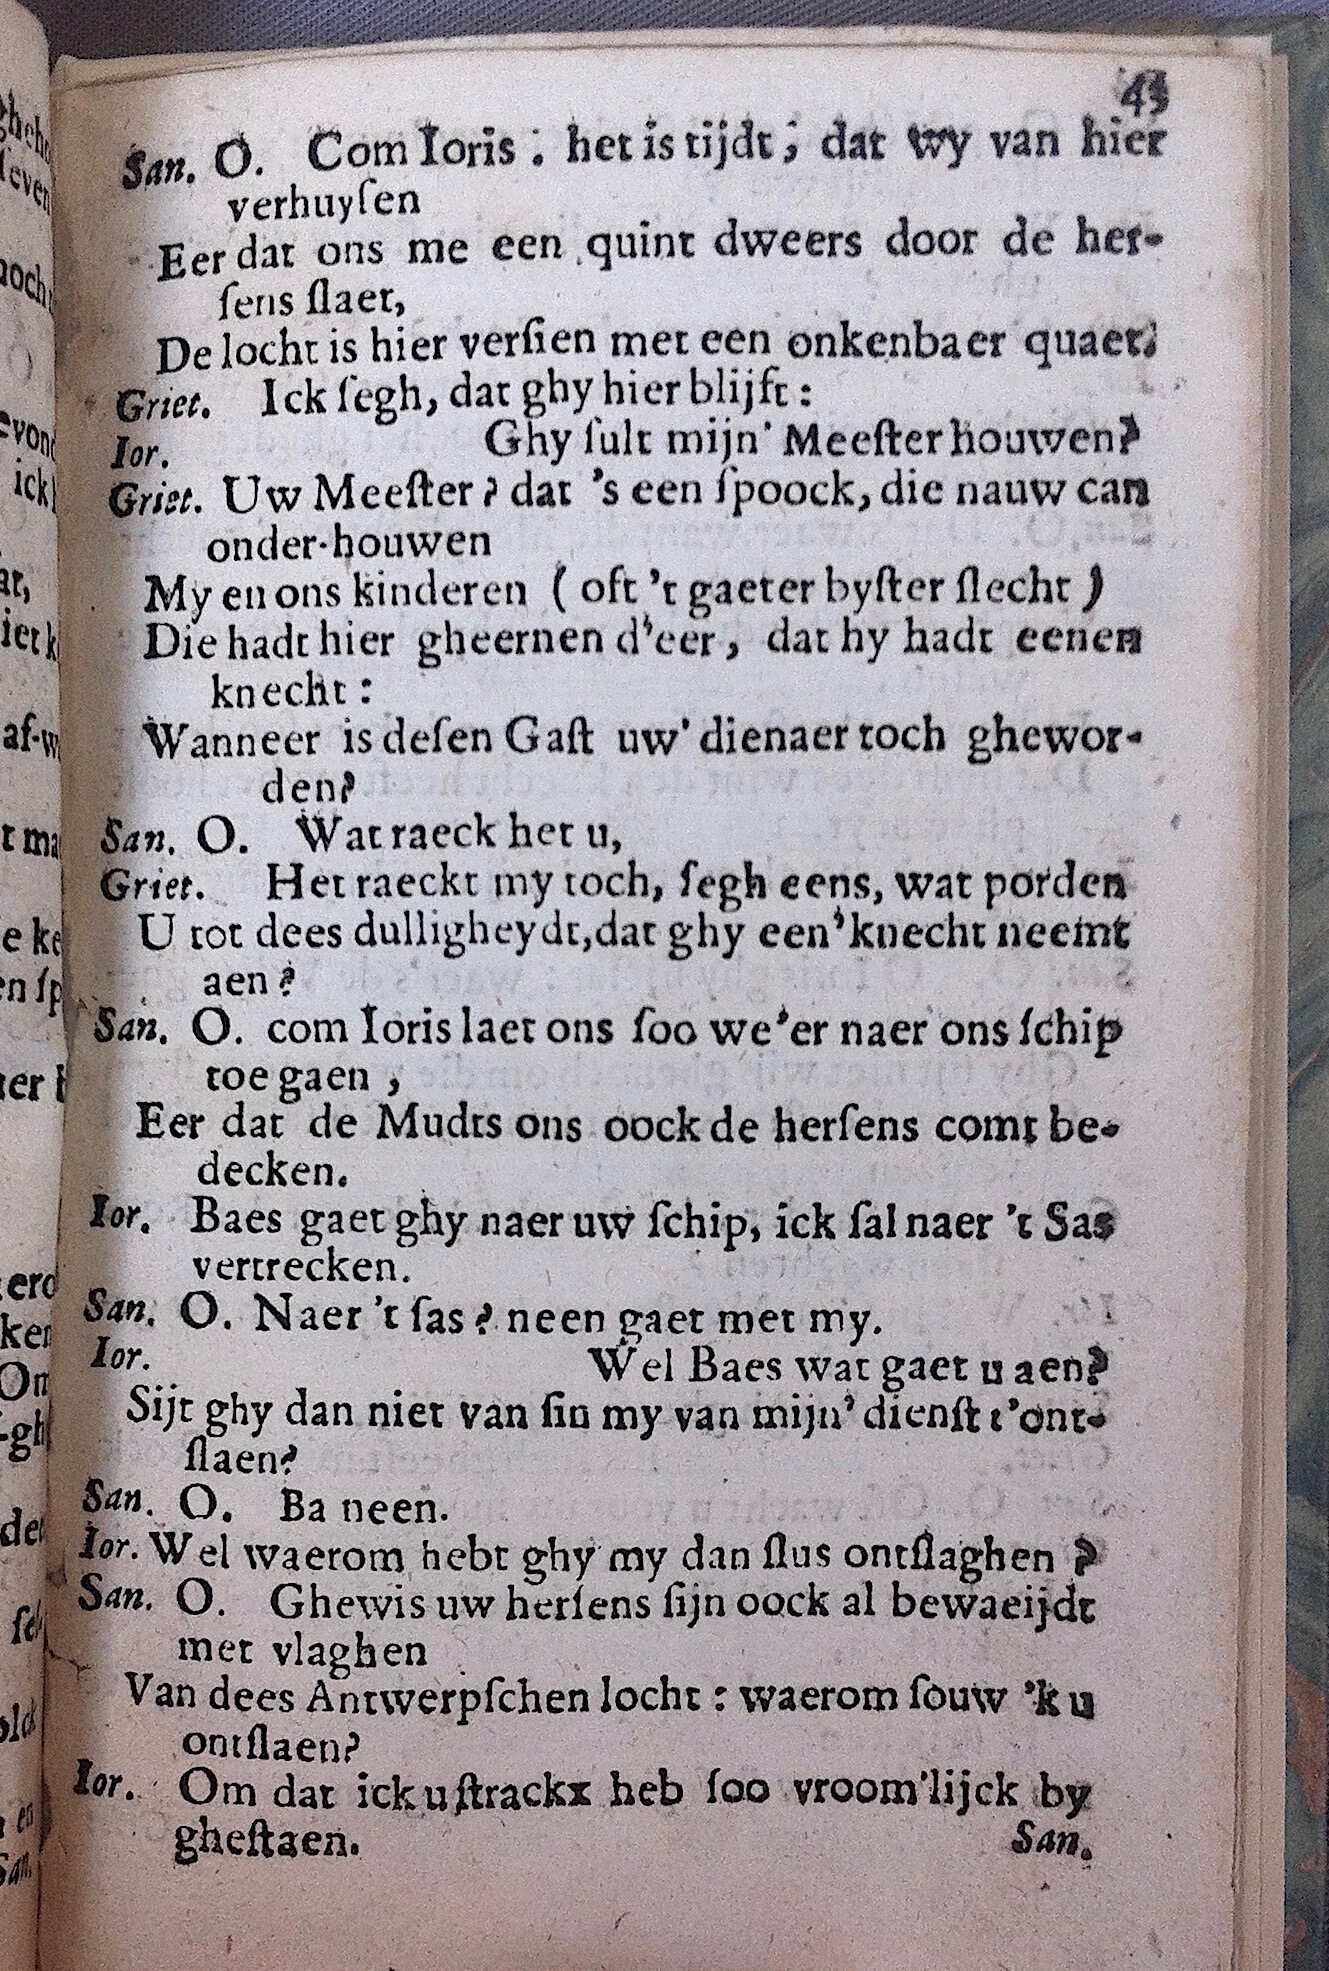 43
San. O. Com Ioris: het is tijdt; dat wy van hier
verhuyſen
Eer dat ons me een quint dweers door de her-
ſens ſlaet,
De locht is hier verſien met een onkenbaer quaet.
Griet. Ick ſegh, dat ghy hier blijft:
Ior. Ghy ſult mijn' Meeſter houwen?
Griet. Uw Meeſter? dat 's een ſpoock, die nauw can
onder-houwen
My en ons kinderen (oft 't gaeter byſter ſlecht)
Die hadt hier gheernen d'eer, dat hy hadt eenen
knecht:
Wanneer is deſen Gaſt uw' dienaer toch ghewor-
den?
San. O. Wat raeck het u,
Griet. Het raeckt my toch, ſegh eens, wat porden
U tot dees dulligheydt, dat ghy een' knecht neemt
aen?
San. O. com Ioris laet ons ſoo we'er naer ons ſchip
toe gaen,
Eer dat de Mudts ons oock de herſens comt be-
decken.
Ior. Baes gaet ghy naer uw ſchip, ick ſal naer 't Sas
vertrecken.
San. O. Naer 't ſas? neen gaet met my.
Ior. Wel Baes wat gaet u aen?
Sijt ghy dan niet van ſin my van mijn' dienſt t'ont-
ſlaen?
San. O. Ba neen.
Ior. Wel waerom hebt ghy my dan ſlus ontſlaghen?
San. O. Ghewis uw herſens ſijn oock al bewaeijdt
met vlaghen
Van dees Antwerpſchen locht: waerom ſouw 'k u
ontſlaen?
Ior. Om dat ick u ſtrackx heb ſoo vroom'lijck by
gheſtaen.
San.